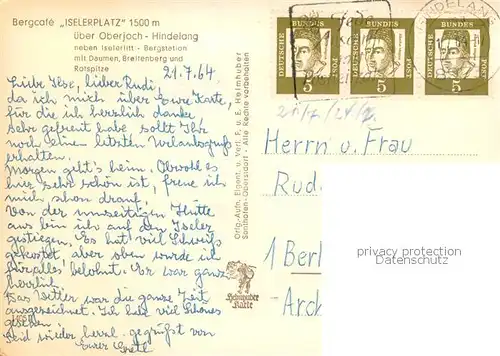 Bergcafé „ISELERPLATZ" 1500 m
über Oberjoch - Hindelang
neben Iselerlift - Bergstation
mit Daumen, Breitenberg und
Rotspitze
21.7.64
Liebe Ilse, lieber Rudi,
da ich mich über Eure Karte,
für die ich herzlich danke
sehr gefreut habe sollt Ihr
noch einen letzten Urlaubsgruß
erhalten.
Morgen geht's heim. Obwohl es
hier sehr schön ist, freue ich
mich schon drauf.
Von der umseitigen Hütte
aus bin ich auf den Iseler
gestiegen. Es hat viel Schweiß
gekostet, aber oben wurde ich
für alles belohnt. Es war ganz
herrlich.
Das Wetter war die ganze Zeit
ausgezeichnet. Ich habe viel Schönes
gesehen.
Seid wieder herzl. gegrüßt von
Eurer
Orig.-Aufn. Eigent. u. Verl. F. u. E. Heimhuber
Sonthofen-Oberstdorf - Alle Rechte vorbehalten
Heimhuber
Karte
DEUTSCHE BUNDES POST 5
DEUTSCHE BUNDES POST 5
DEUTSCHE BUNDES POST 5
HINDELANG
Herrn u. Frau
Rud
1 Berl
Arc
privacy protection
watermark